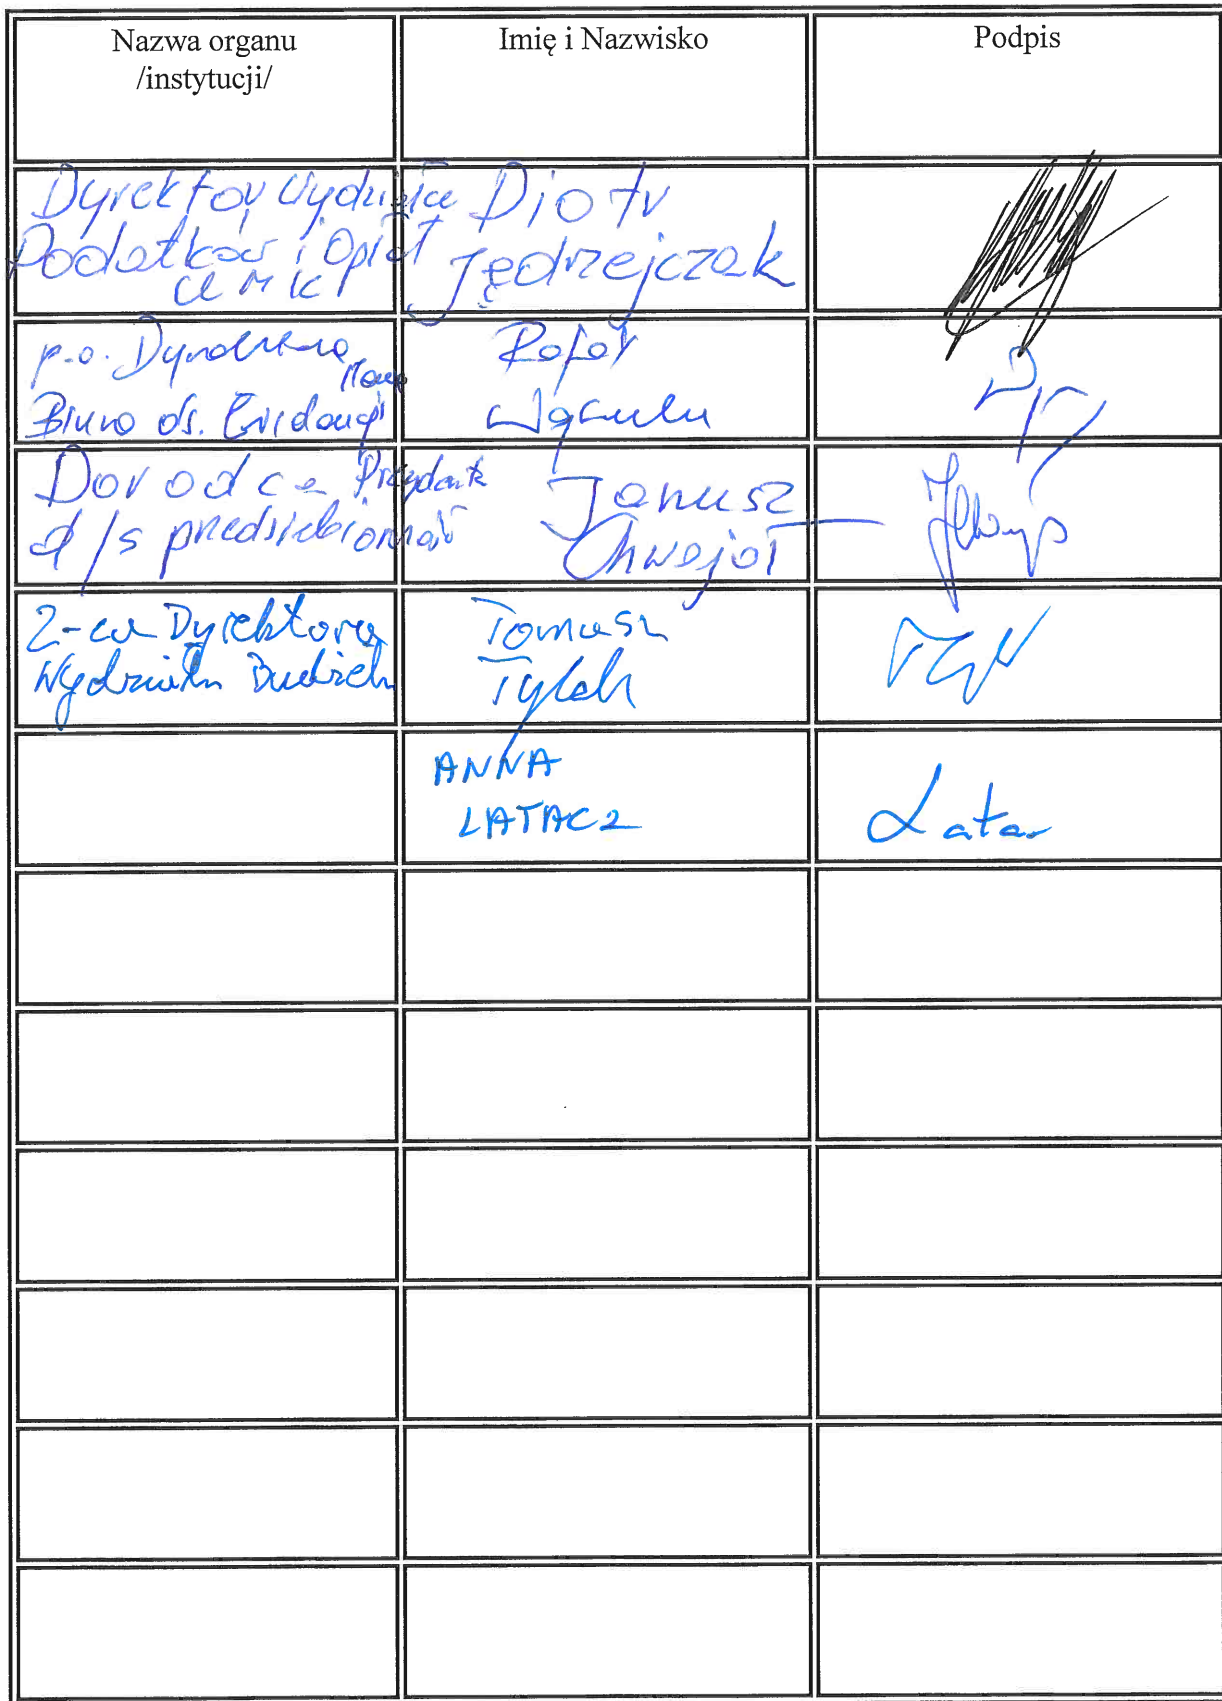 Nazwa organu
/instytucji/
Imię i Nazwisko
Podpis
Dyrektor Wydziału
Podatków i Opłat
UMK
Piotr
Jędrzejczak
p.o. Dyrektora
Biuro ds. Ewidencji
Rafał
Doradca Prezydenta
d/s przedsiębiorczości
Janusz
Chwajoł
Z-ca Dyrektora
Wydziału Budżetu
Tomasz
Tylek
ANNA
LATACZ
Latac